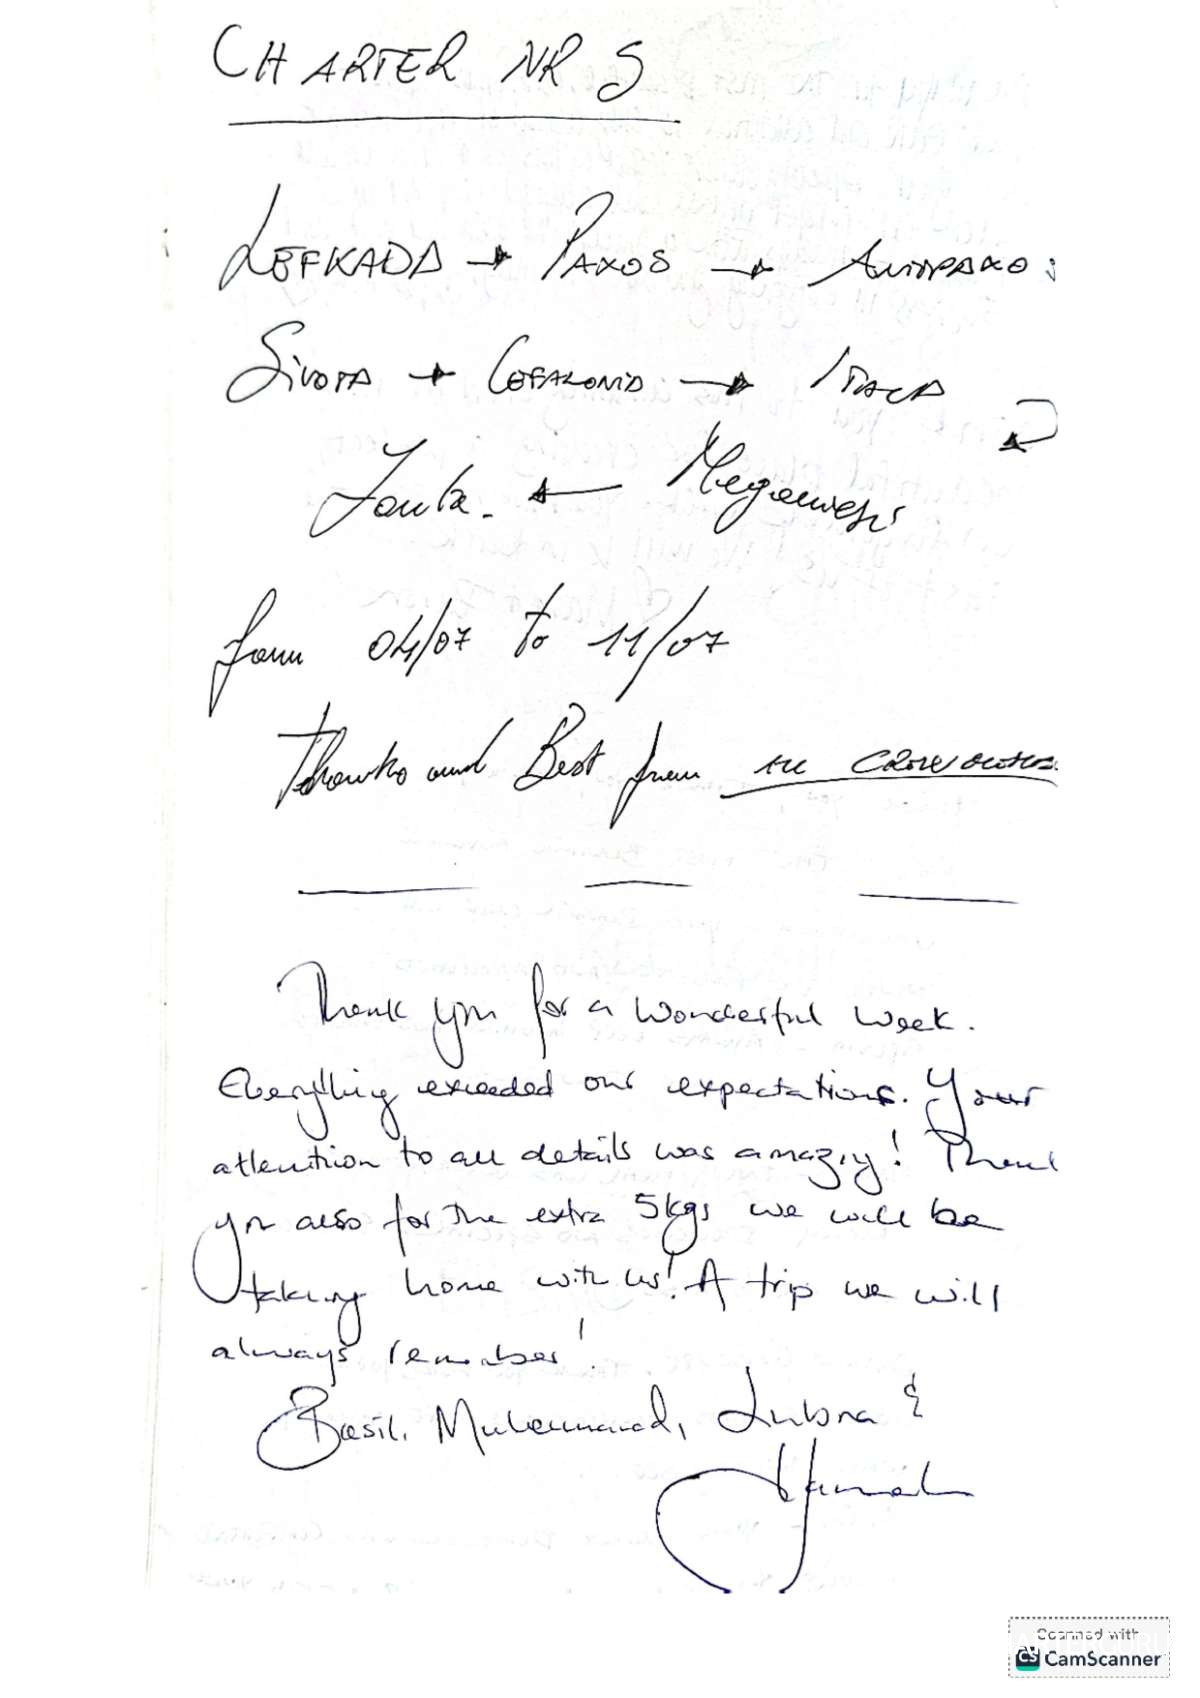 CHARTER NR 5
LEFKADA → PAXOS → ANTIPAXOS
SIVOTA → CEFALONIA → ITACA
Zante. ← Meganissi
from 04/07 to 11/07
Thanks and Best from
Thank you for a wonderful week.
Everything exceeded our expectations. Your
attention to all details was amazing! Thank
you also for the extra 5kgs we will be
taking home with us! A trip we will
always remember!
Basil, Muhammad, Lubna &
Hannah
Scanned with
CS CamScanner